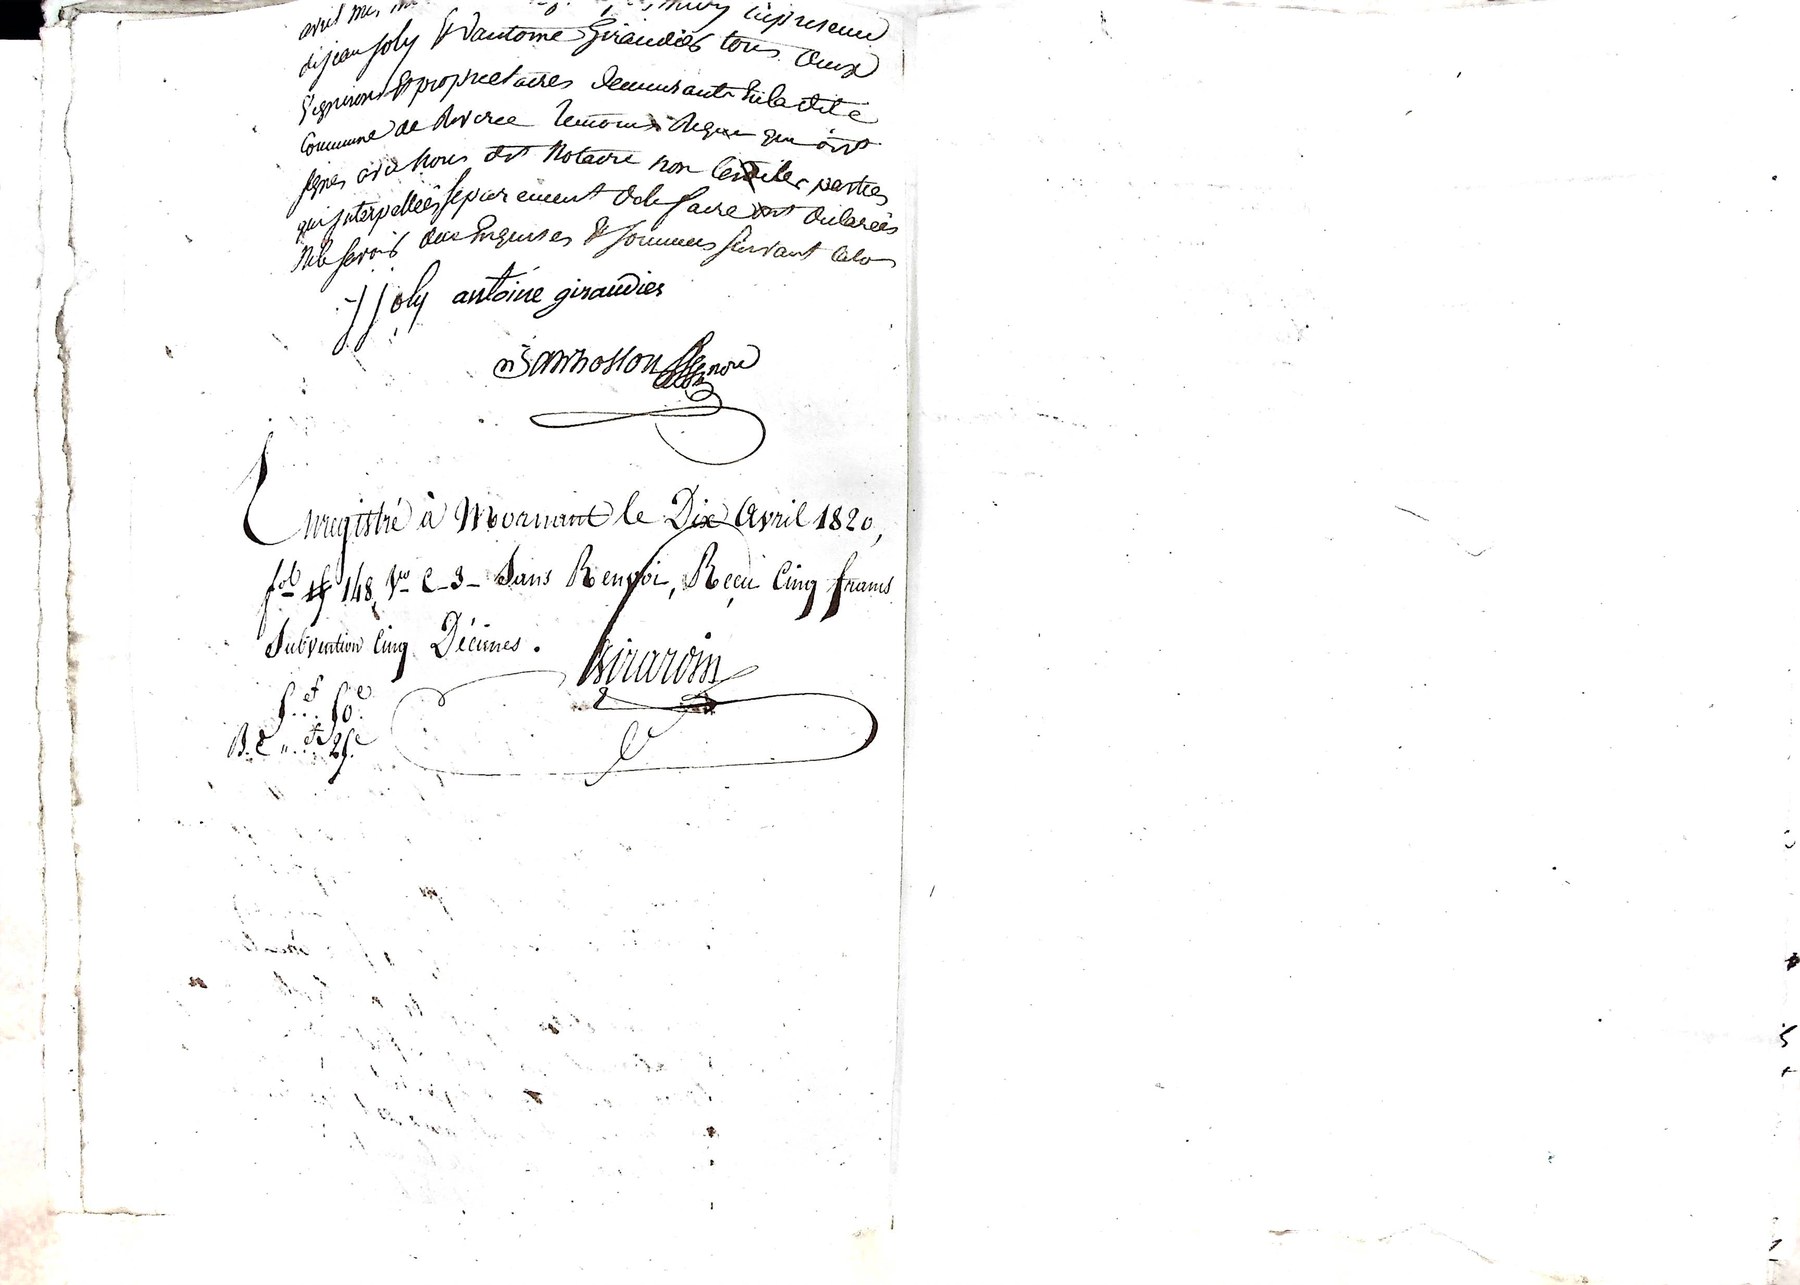 avril mil
de jean Joly & d'antoine Giraudier tous deux
Vignerons & proprietaires demeurants en la dite
Commune de Riverie temoins requis qui ont
signés avec nous dit Notaire non lesdites parties
qui interpellées separement de le faire ont declarées
ne le savoir de ce enquises & sommees suivant la loi
j joly antoine giraudier
Enregistré à Mornant le Dix Avril 1820,
fol 148, Vo C-3- Sans Renvoi, Reçu Cinq francs
Subvention Cinq Décimes.
Girardin
5f 50c
B. C. 25c